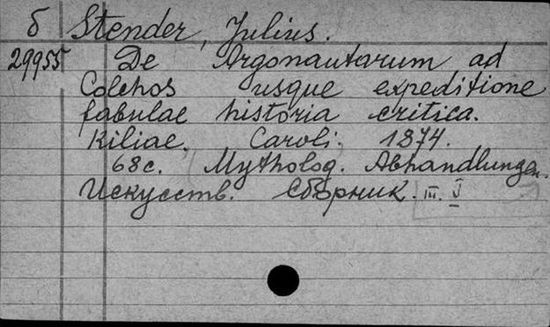 б Stender, Julius.
29955 De Argonautarum ad
Colchos usque expeditione
fabulae historia critica.
Kiliae. Caroli. 1874.
68с. Mytholog. Abhandlungen.
Искусств. Сборник. III. V